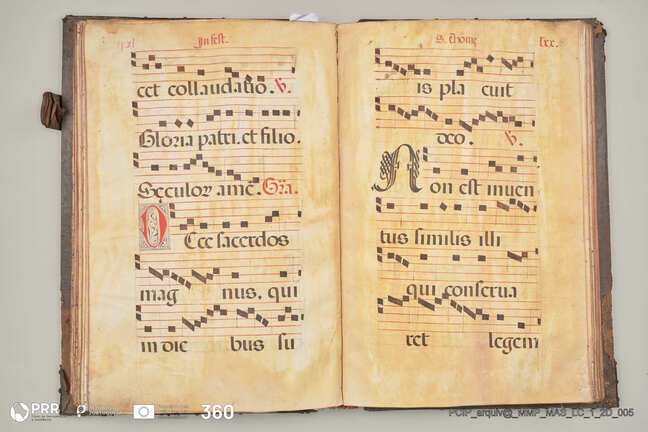 In fest.
cet collaudatio. V.
Gloria patri. et filio.
Seculor amē. Gra.
Ecce sacerdos
mag nus. qui
in die bus su
S. Thome lxx.
is pla cuit
deo. V.
Non est inuen
tus similis illi
qui conserua
ret legem
PRR
360
PCIP_arquiv@_MMP_MAS_LC_1_2D_005